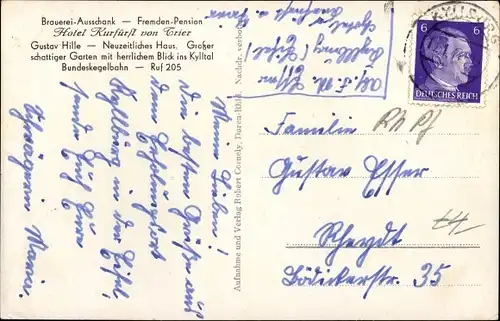 Brauerei-Ausschank — Fremden-Pension
Hotel Kurfürst von Trier
Gustav Hille — Neuzeitliches Haus. Großer
schattiger Garten mit herrlichem Blick ins Kylltal
Bundeskegelbahn — Ruf 205
Meine Lieben!
Die besten Grüße aus
dem Erholungsort
Kyllburg in der Eifel,
sendet Euch Eure
Schwägerin Maria.
Kyllburg / Eifel
Aufnahme und Verlag Robert Cornely, Düren-Rhld. Nachdr. verboten
KYLLBURG
6 6
DEUTSCHES REICH
Familie
Rh Pf
Gustav Esser
44
Rheydt
Bödickerstr. 35